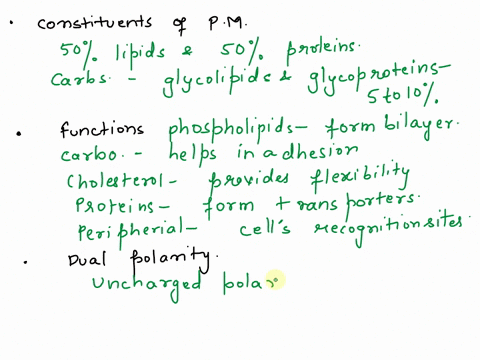 • constituents of P.M.
50% lipids & 50% proteins.
Carbs - glycolipids & glycoproteins-
5 to 10%
• functions phospholipids- form bilayer.
carbo. - helps in adhesion
Cholesterol- provides flexibility
Proteins- form transporters.
Peripherial- cell's recognition sites.
• Dual polarity.
Uncharged polar